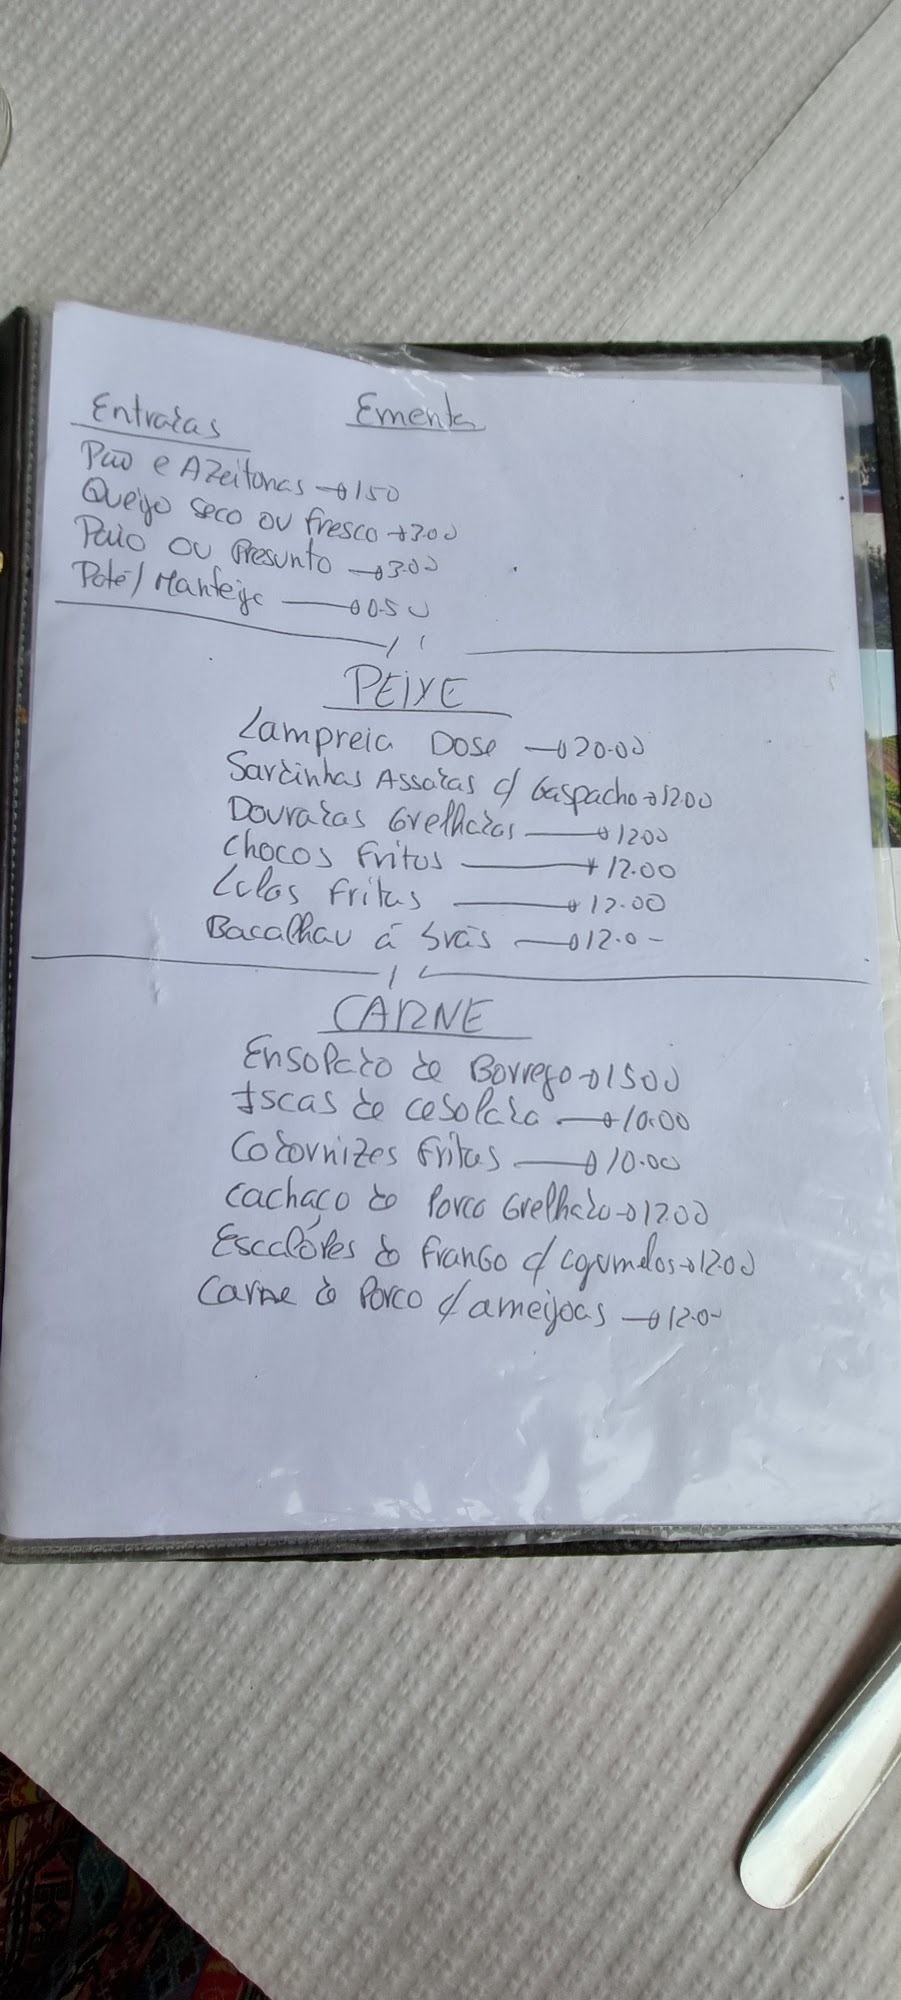 Entradas
Ementa
Pão e Azeitonas → 1.50
Queijo seco ou fresco → 3.00
Paio ou Presunto → 3.00
Patê / Manteiga → 0.50
PEIXE
Lampreia Dose → 20.00
Sardinhas Assadas c/ Gaspacho → 12.00
Douradas Grelhadas → 12.00
Chocos Fritos → 12.00
Lulas Fritas → 12.00
Bacalhau á Brás → 12.0-
CARNE
Ensopado de Borrego → 15.00
Iscas de cebolada → 10.00
Codornizes Fritas → 10.00
Cachaço de Porco Grelhado → 12.00
Escalópes de Frango c/ cogumelos → 12.00
Carne de Porco c/ ameijoas → 12.0-